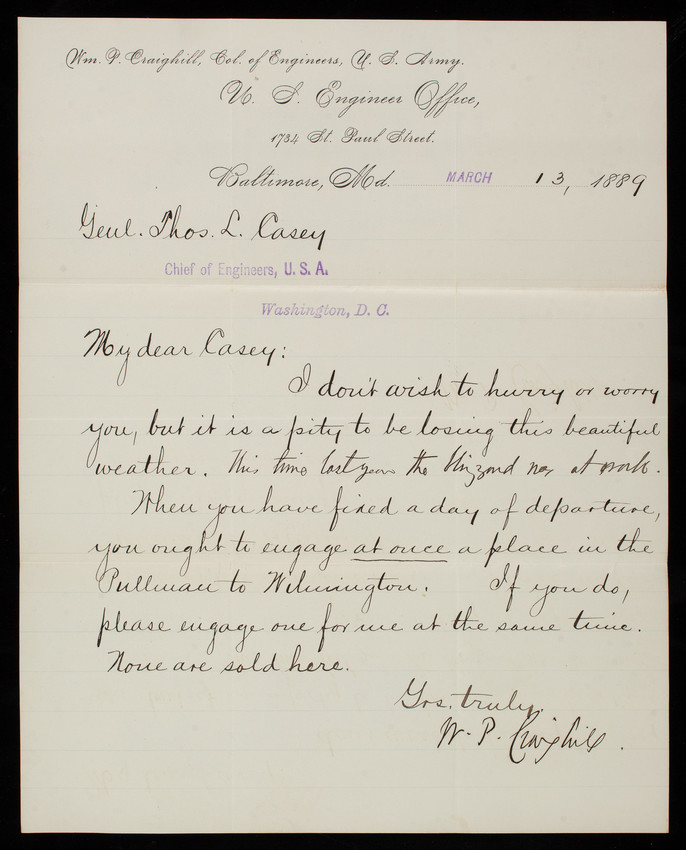 Wm. P. Craighill, Col. of Engineers, U. S. Army.
U. S. Engineer Office,
1734 St. Paul Street.
Baltimore, Md. MARCH 13, 1889
Genl. Thos. L. Casey
Chief of Engineers, U. S. A.
Washington, D. C.
My dear Casey:
I don't wish to hurry or worry
you, but it is a pity to be losing this beautiful
weather. This time last year the blizzard was at work.
When you have fixed a day of departure,
you ought to engage at once a place in the
Pullman to Wilmington. If you do,
please engage one for me at the same time.
None are sold here.
Yrs. truly,
W. P. Craighill.